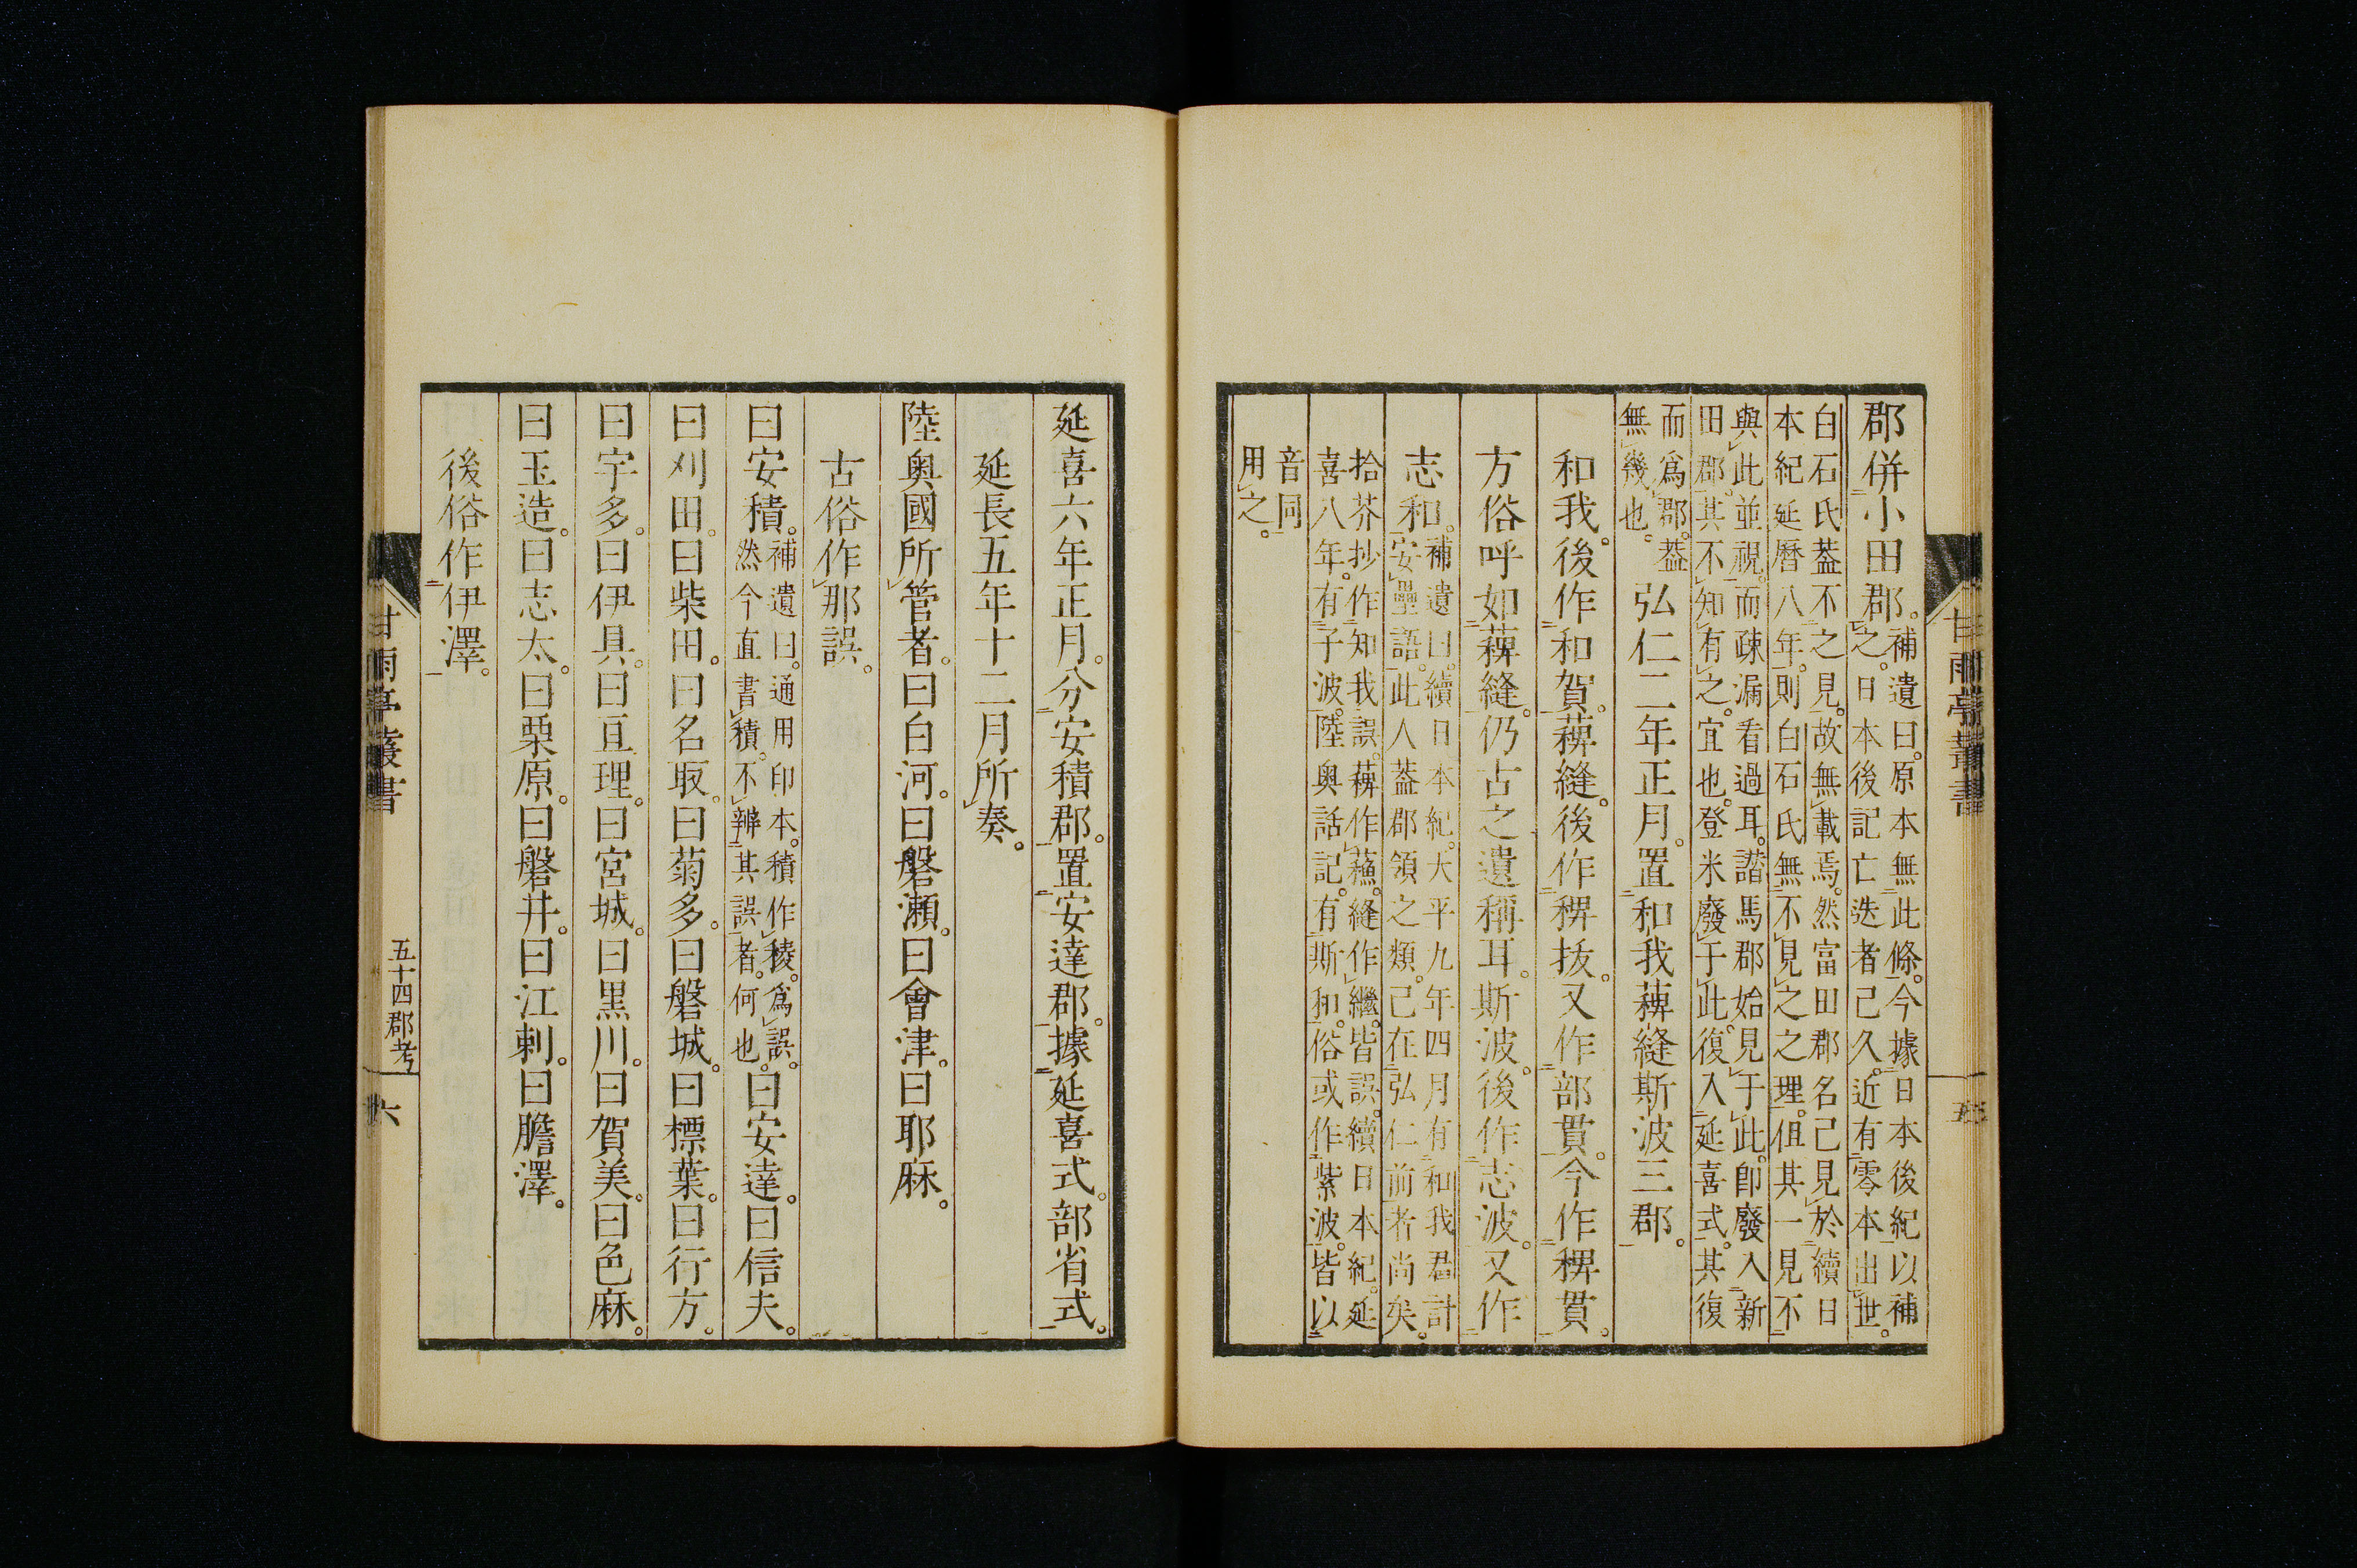 郡併小田郡。補遺曰。原本無此條。今據日本後紀以補
之。日本後記亡迭者己久。近有零本出世。
白石氏葢不之見。故無載焉。然富田郡名己見於續日
本紀延暦八年。則白石氏無不見之之理。伹其一見不
與此並視。而疎漏看過耳。讃馬郡始見于此。即廢入新
田郡。其不知有之。宜也。登米廢于此。復入延喜式。其復
而爲郡。葢
無幾也。弘仁二年正月。置和我薭縫斯波三郡。
和我。後作和賀。薭縫。後作稗抜。又作部貫。今作稗貫。
方俗呼如薭縫。仍古之遺稱耳。斯波。後作志波。又作
志和。補遺曰。續日本紀。大平九年四月有和我君計
安壘語。此人葢郡領之類。己在弘仁前者尚矣。
拾芥抄作知我誤。薭作蘓。縫作繼。皆誤。續日本紀。延
喜八年。有子波。陸奥話記。有斯和。俗或作紫波。皆以
音同
用之。
甘雨亭叢書
五
延喜六年正月。分安積郡。置安達郡。據延喜式。部省式。
延長五年十二月所奏。
陸奥國所管者。曰白河。曰磐瀬。曰會津。曰耶麻。
古俗作那誤。
曰安積。補遺曰。通用印本。積作稜。爲誤。
然今直書積。不辨其誤者。何也。曰安達。曰信夫。
曰刈田。曰柴田。曰名取。曰菊多。曰磐城。曰標葉。曰行方。
曰宇多。曰伊具。曰亘理。曰宮城。曰黒川。曰賀美。曰色麻。
曰玉造。曰志太。曰栗原。曰磐井。曰江刺。曰膽澤。
後俗作伊澤。
甘雨亭叢書
五十四郡考
六